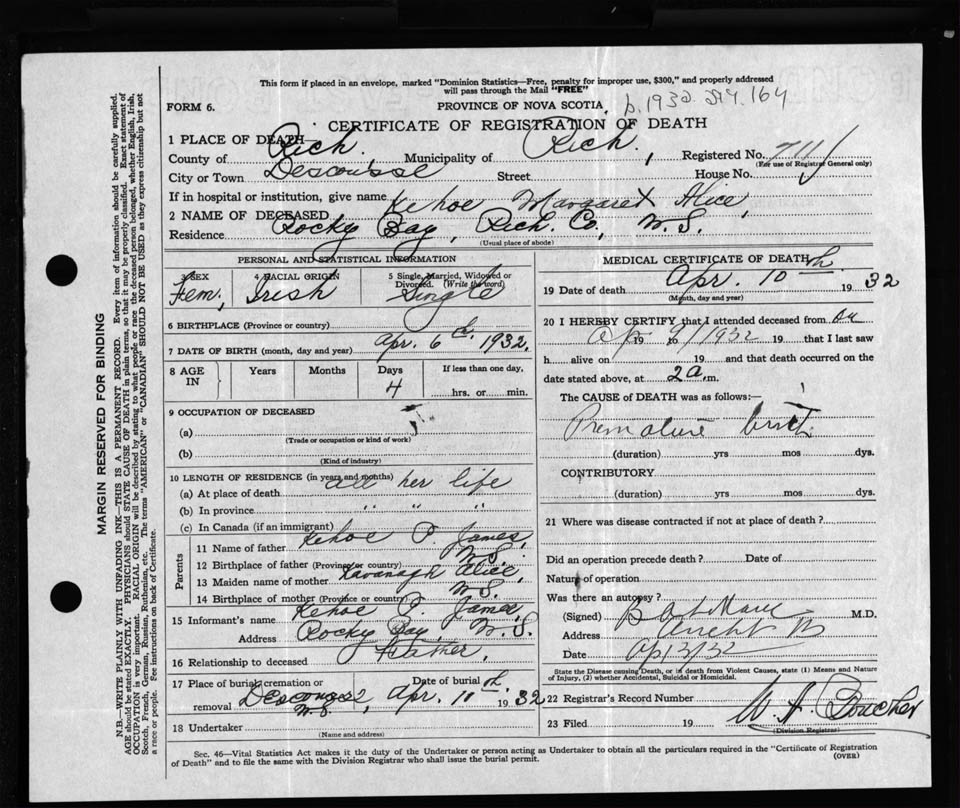 This form if placed in an envelope, marked "Dominion Statistics—Free, penalty for improper use, $300," and properly addressed
will pass through the Mail "FREE"
FORM 6.
PROVINCE OF NOVA SCOTIA
b. 1932. 164
CERTIFICATE OF REGISTRATION OF DEATH
1 PLACE OF DEATH
County of Rich. Municipality of Rich. Registered No.
(For use of Registrar General only)
City or Town Descousse Street House No.
If in hospital or institution, give name
2 NAME OF DECEASED Kehoe Margaret Alice,
Residence Rocky Bay, Rich. Co., N.S.
(Usual place of abode)
PERSONAL AND STATISTICAL INFORMATION
3 SEX 4 RACIAL ORIGIN 5 Single, Married, Widowed or Divorced. (Write the word)
Fem, Irish Single
6 BIRTHPLACE (Province or country)
7 DATE OF BIRTH (month, day and year) Apr. 6th, 1932.
8 AGE IN Years Months Days If less than one day,
4 hrs. or min.
9 OCCUPATION OF DECEASED
(a)
(Trade or occupation or kind of work)
(b)
(Kind of industry)
10 LENGTH OF RESIDENCE (in years and months)
(a) At place of death all her life
(b) In province " " "
(c) In Canada (if an immigrant)
Parents
11 Name of father Kehoe P. James,
12 Birthplace of father (Province or country) N.S.
13 Maiden name of mother Kavanagh Alice,
14 Birthplace of mother (Province or country) N.S.
15 Informant's name Kehoe P. James,
Address Rocky Bay, N.S.
16 Relationship to deceased Father,
17 Place of burial, cremation or removal Date of burial
Descousse, N.S. Apr. 10th, 1932
18 Undertaker
(Name and address)
MEDICAL CERTIFICATE OF DEATH
19 Date of death Apr. 10th 1932
(Month, day and year)
20 I HEREBY CERTIFY that I attended deceased from on
Ap 9/1932 19 to 19 that I last saw
h alive on 19 and that death occurred on the
date stated above, at 2 a.m.
The CAUSE of DEATH was as follows:—
Premature birth
(duration) yrs mos dys.
CONTRIBUTORY
(duration) yrs mos dys.
21 Where was disease contracted if not at place of death?
Did an operation precede death? Date of
Nature of operation
Was there an autopsy?
(Signed) M.D.
Address
Date Ap 13/32
State the Disease causing Death, or in death from Violent Causes, state (1) Means and Nature
of Injury, (2) whether Accidental, Suicidal or Homicidal.
22 Registrar's Record Number
23 Filed 19
(Division Registrar)
Sec. 46—Vital Statistics Act makes it the duty of the Undertaker or person acting as Undertaker to obtain all the particulars required in the "Certificate of Registration
of Death" and to file the same with the Division Registrar who shall issue the burial permit.
(OVER)
MARGIN RESERVED FOR BINDING
N.B.—WRITE PLAINLY WITH UNFADING INK—THIS IS A PERMANENT RECORD. Every item of information should be carefully supplied.
AGE should be stated EXACTLY. PHYSICIANS should STATE CAUSE OF DEATH in plain terms, so that it may be properly classified. Exact statement of
OCCUPATION is very important. RACIAL ORIGIN will be described by stating to what people or race the deceased person belonged, whether English, Irish,
Scotch, French, German, Russian, Ruthenian, etc. The terms "AMERICAN" or "CANADIAN" SHOULD NOT BE USED as they express citizenship but not
a race or people. See instructions on back of Certificate.